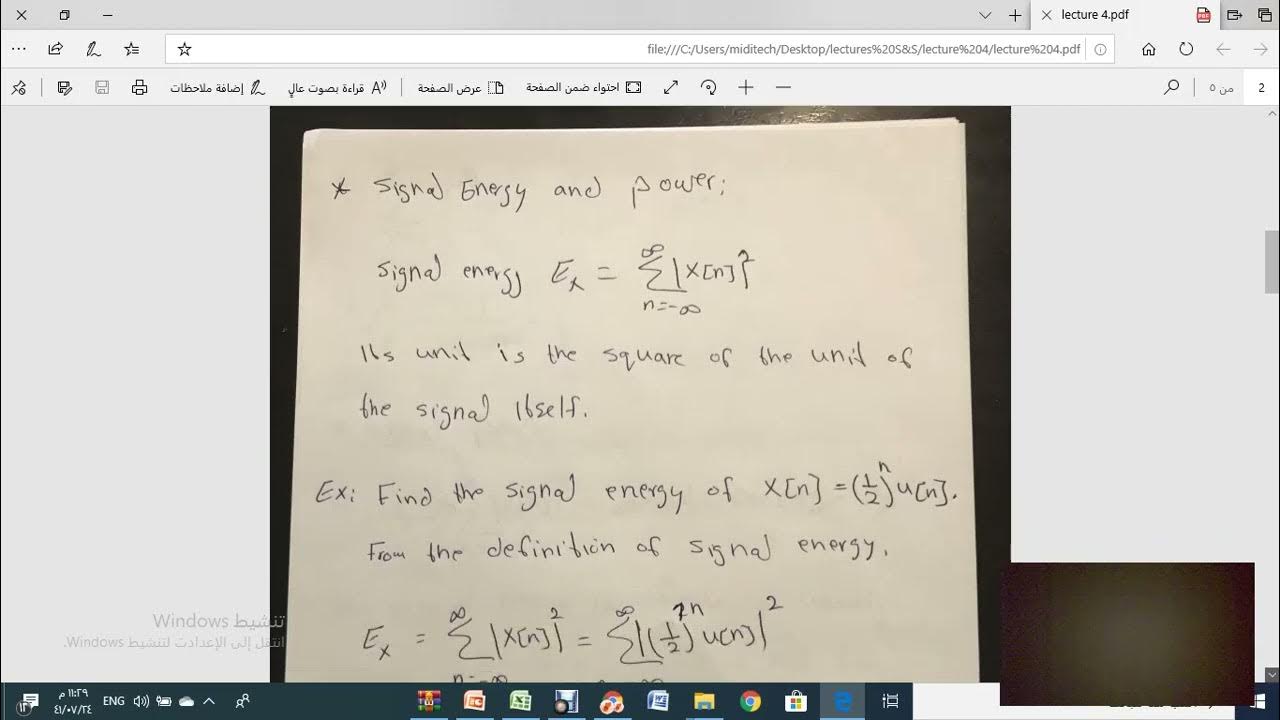 lecture 4.pdf
file:///C:/Users/miditech/Desktop/lectures%20S&S/lecture%204/lecture%204.pdf
إضافة ملاحظات
قراءة بصوت عالٍ
عرض الصفحة
احتواء ضمن الصفحة
2 من ٥
* Signal Energy and power:
Signal energy Eₓ = ∑_{n=-∞}^{∞} |x[n]|²
Its unit is the square of the unit of
the signal itself.
Ex: Find the signal energy of x[n] = (1/2)ⁿ u[n].
From the definition of signal energy.
Eₓ = ∑_{n=-∞}^{∞} |x[n]|² = ∑^{∞} |(1/2)ⁿ u[n]|²
تنشيط Windows
انتقل إلى الإعدادات لتنشيط Windows.
ENG
١١:٢٩ م
٤١/٠٧/٢٤